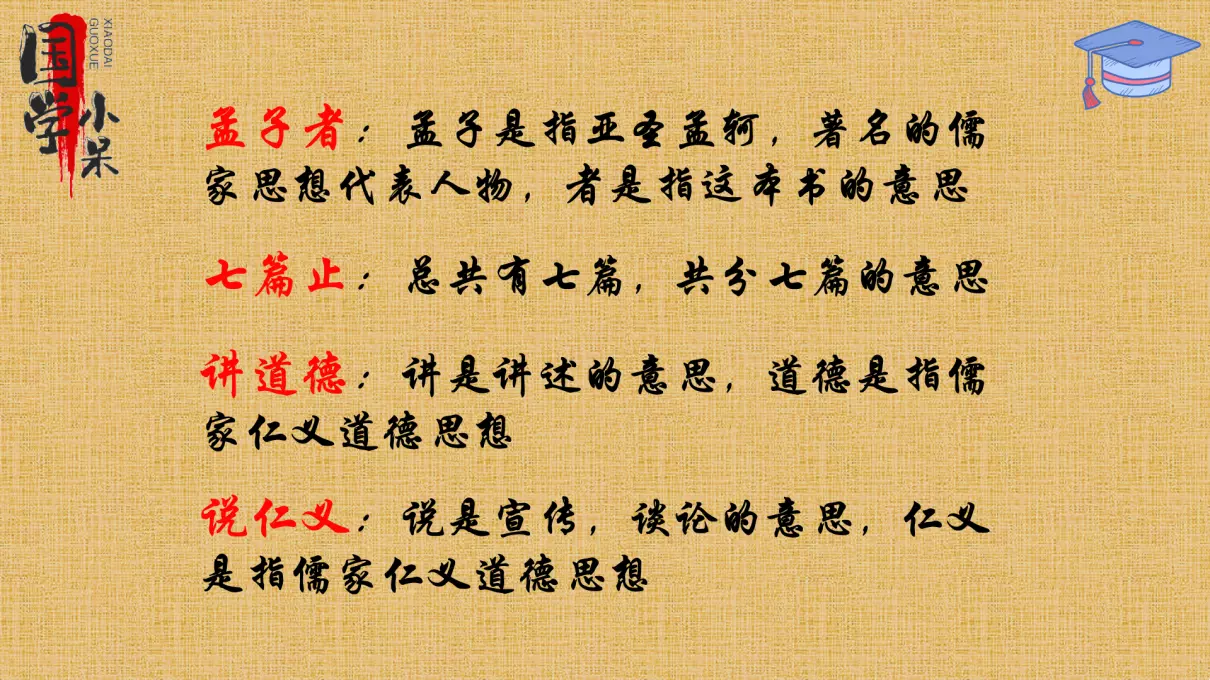 国学
小呆
XIAODAI
GUOXUE
孟子者：孟子是指亚圣孟轲，著名的儒
家思想代表人物，者是指这本书的意思
七篇止：总共有七篇，共分七篇的意思
讲道德：讲是讲述的意思，道德是指儒
家仁义道德思想
说仁义：说是宣传，谈论的意思，仁义
是指儒家仁义道德思想